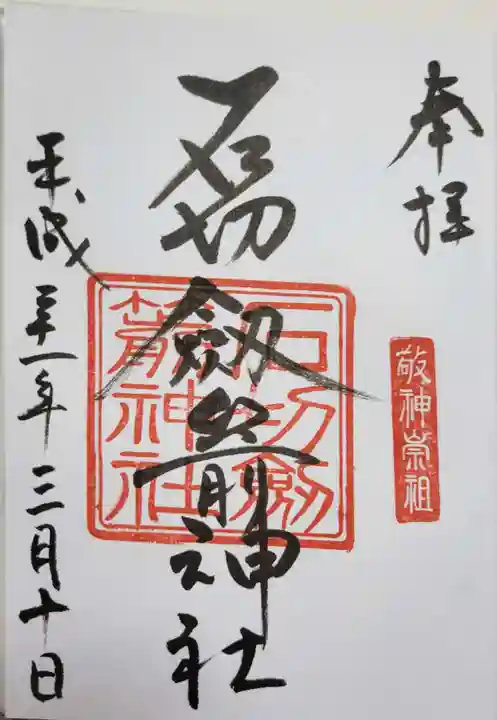 奉拝
敬神崇祖
石切劔箭神社
石切劔
箭神社
平成二十一年三月十日